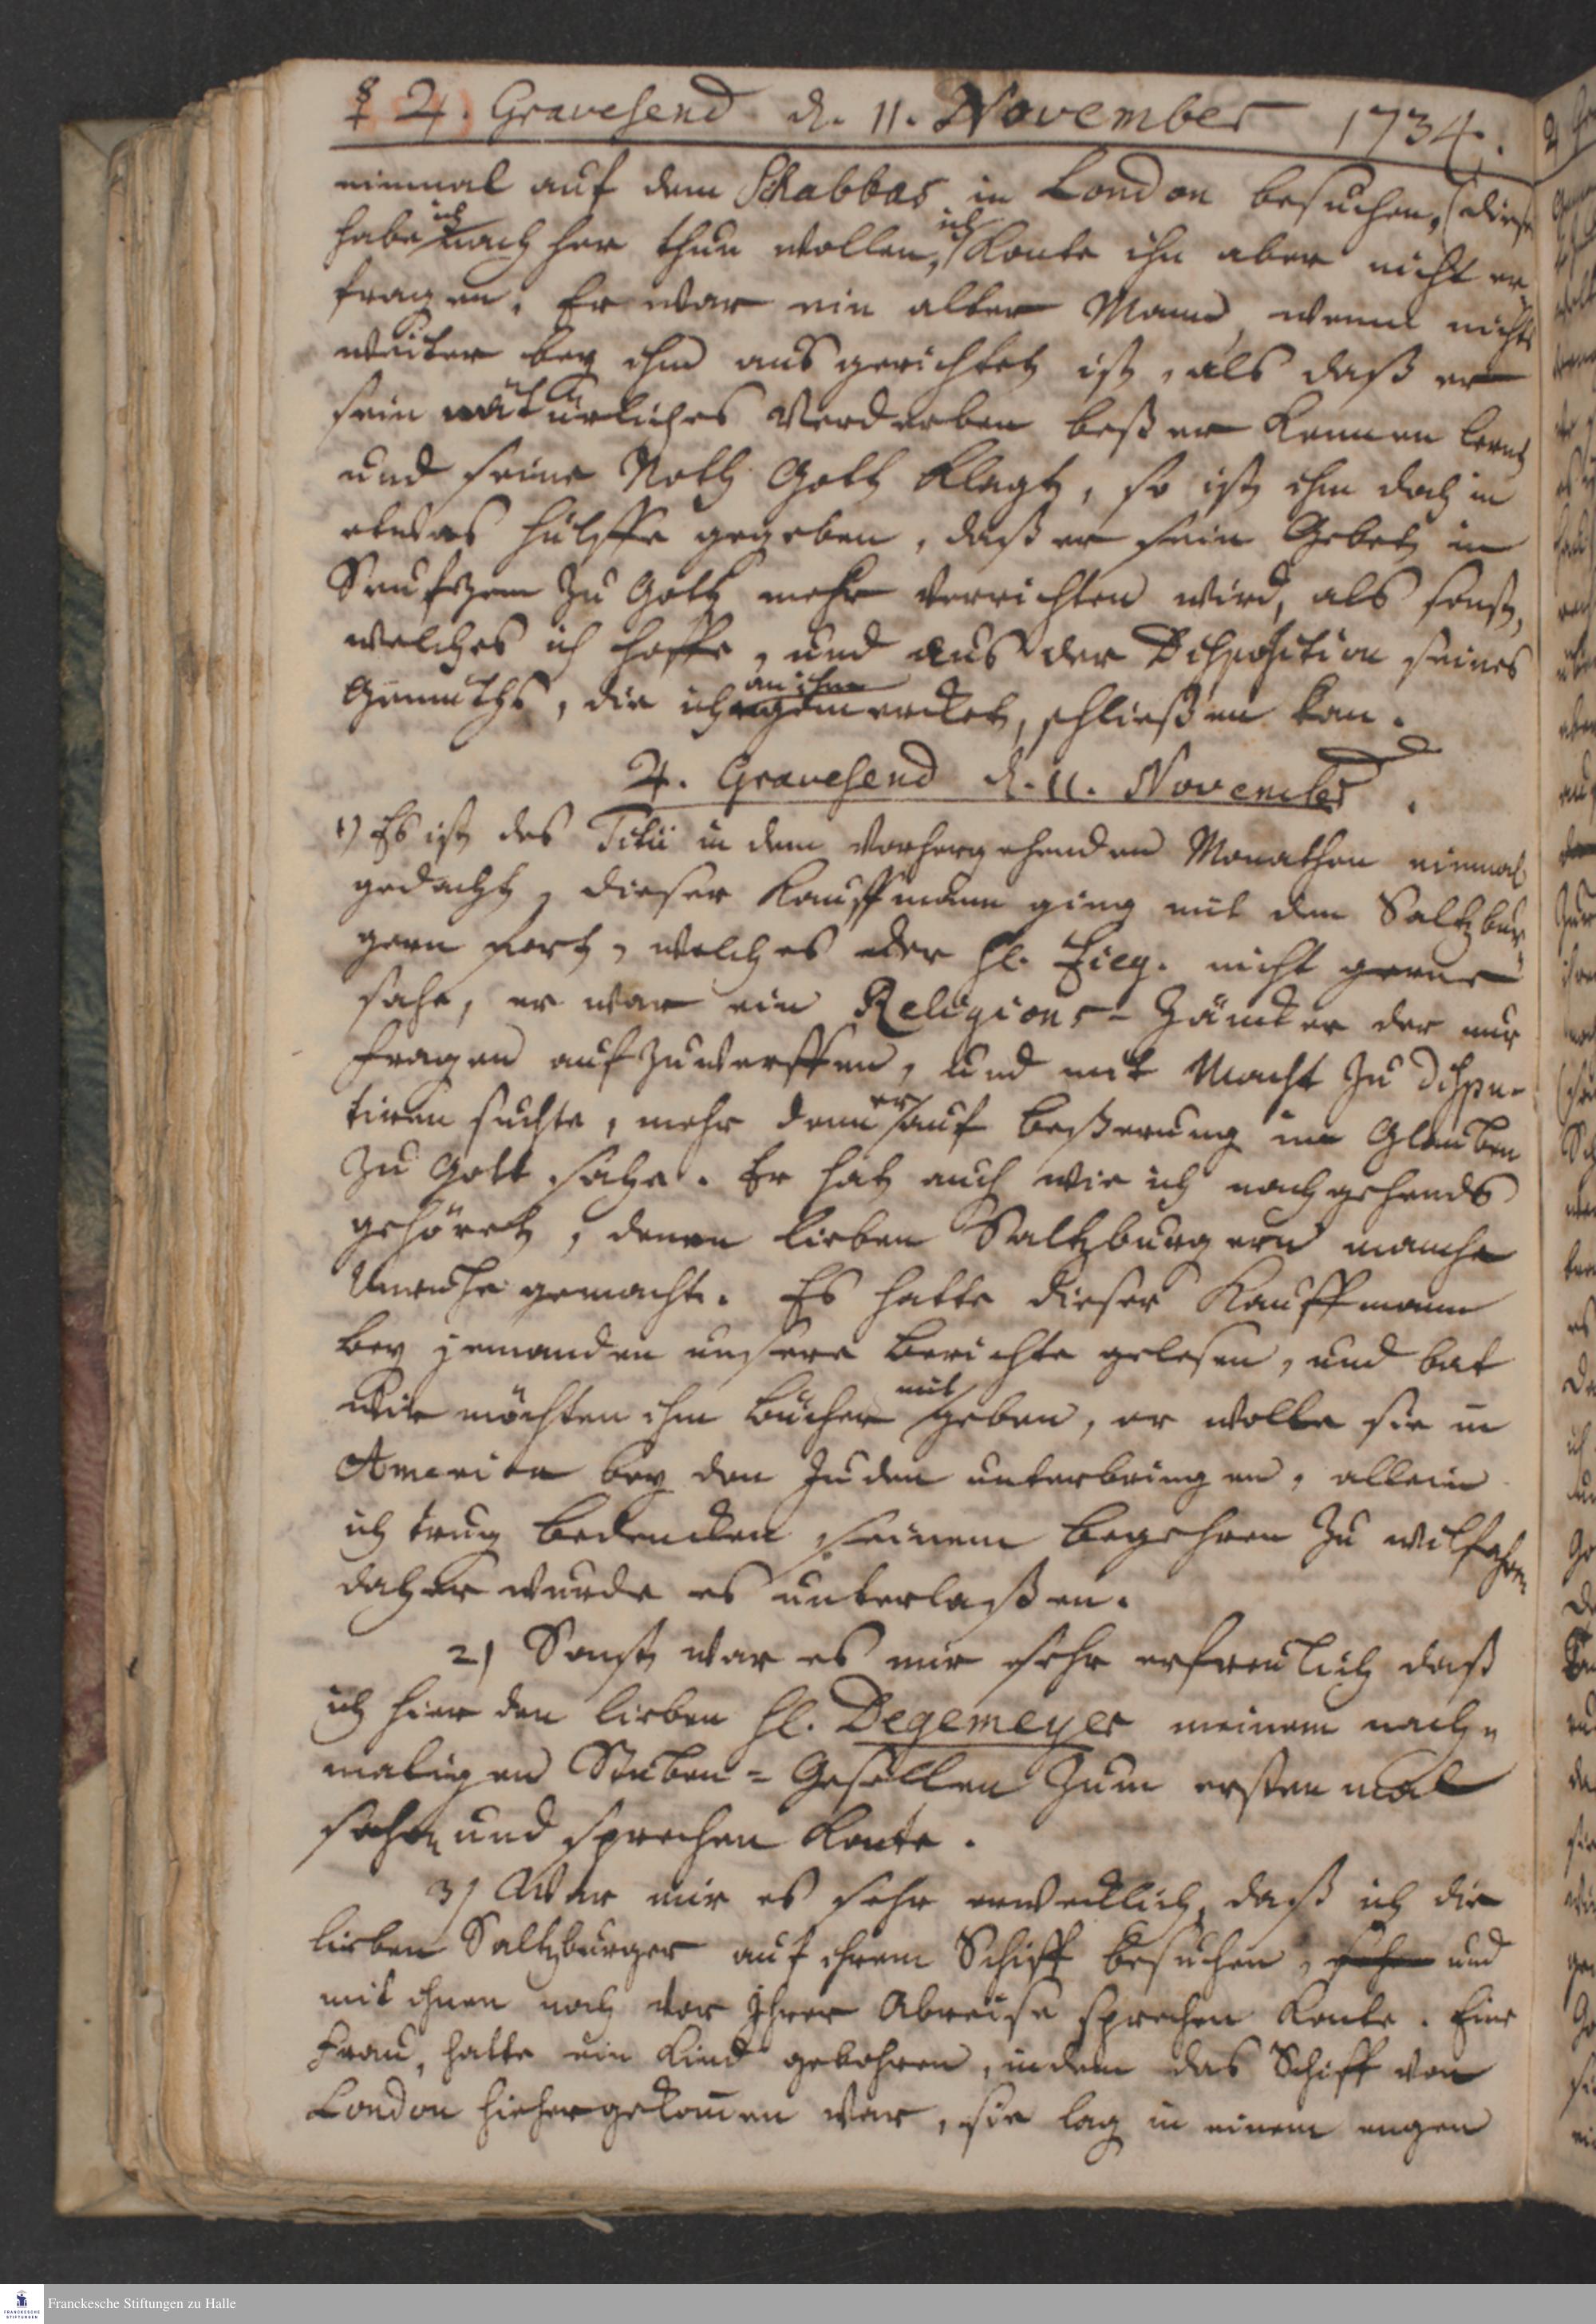 ☿ ♃. Gravesend d. 11. November 1734.
einmal auf dem Schabbas in London besuchen, (dieses
habe ich nach her thun wollen, ich konte ihn aber nicht er
fragen. Er war ein alter Mann, wenn nichts
weiter bey ihm ausgerichtet ist, als daß er
sein natürliches Verderben beßer kennen lernt
und seine Noth Gott klagt, so ist ihm doch in
etwas hülffe gegeben, daß er sein Gebet in
Seufzen zu Gott mehr verrichten wird, als sonst,
welches ich hoffe, und aus der Disposition seines
Gemüths, die ich an ihm gemercket, schließen kan.
♃. Gravesend d. 11. November.
1) Es ist des Titii in dem vorhergehenden Monathen einmal
gedacht, dieser Kauffmann ging mit den Saltzbur
gern fort, welches der H. Zieg. nicht gerne
sahe, er war ein Religions-Zäncker der nur
Fragen aufzuwerffen, und mit Macht zu dispu-
tiren suchte, mehr denn er auf beßerung im Glauben
zu Gott sahe. Er hat auch wie ich nachgehends
gehöret, denen lieben Saltzburgern manche
Unruhe gemacht. Es hatte dieser Kauffmann
bey jemanden unsere Berichte gelesen, und bat
wir möchten ihm Bücher mit geben, er wolle sie in
America bey den Juden unterbringen, allein
ich trug bedencken seinem begehren zu wilfahren
daher wurde es unterlaßen.
2) Sonst war es mir sehr erfreulich daß
ich hier den lieben H. Degemeyer meinem nach-
maligen Stuben-Gesellen zum ersten mal
sehen und sprechen konte.
3) War mir es sehr erwecklich, daß ich die
lieben Saltzburger auf ihrem Schiff besuchen, sehen und
mit ihnen noch vor Ihrer Abreise sprechen konte. Eine
Frau, hatte ein Kind gebohren, indem das Schiff von
London hiehergekom̄en war, sie lag in einem engen
Franckesche Stiftungen zu Halle